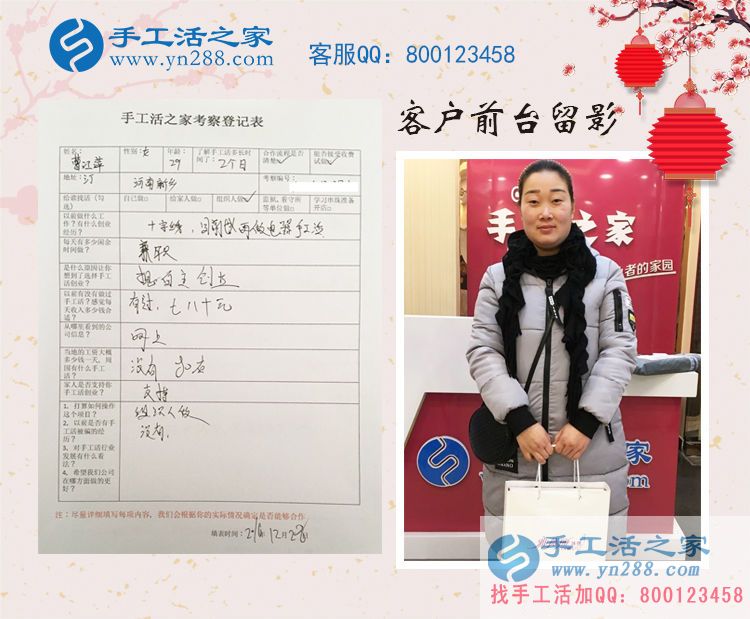 手工活之家
www.yn288.com
客服QQ：800123458
手工活之家考察登记表
客户前台留影
姓名： 曹江萍 性别：女 年龄：29 了解手工活多长时间了：2个月 合作流程是否清楚✓ 能否接受收费试做✓
地址： 河南新乡 考察编号：
给谁找活（勾选） 自己做□ 给家人做□ 组织人做□✓ 监狱、看守所等单位做□ 学习串珠准备开店□
以前做什么工作？有什么创业经历？ 十字绣，目前做
每天有多少闲余时间做？ 兼职
是什么原因让你想到了选择手工活创业？ 想自主创业
以前有没有做过手工活？感觉每天收入多少钱合适？ 有过，七八十元
从哪里看到的公司信息？ 网上
当地的工资大概多少钱一天，周围有什么手工活？ 没有
家人是否支持你手工活创业？ 支持
1、打算如何操作这个项目？ 组织人做
2、以前是否有手工活被骗的经历？ 没有，
3、对手工活行业发展有什么看法？
4、希望我们公司在哪方面做的更好？
注：尽量详细填写每项内容，我们会根据你的实际情况确定是否能够合作
填表时间：
手工活之家
者的家园
之家
.com
手工活之家
www.yn288.com
找手工活加QQ：800123458